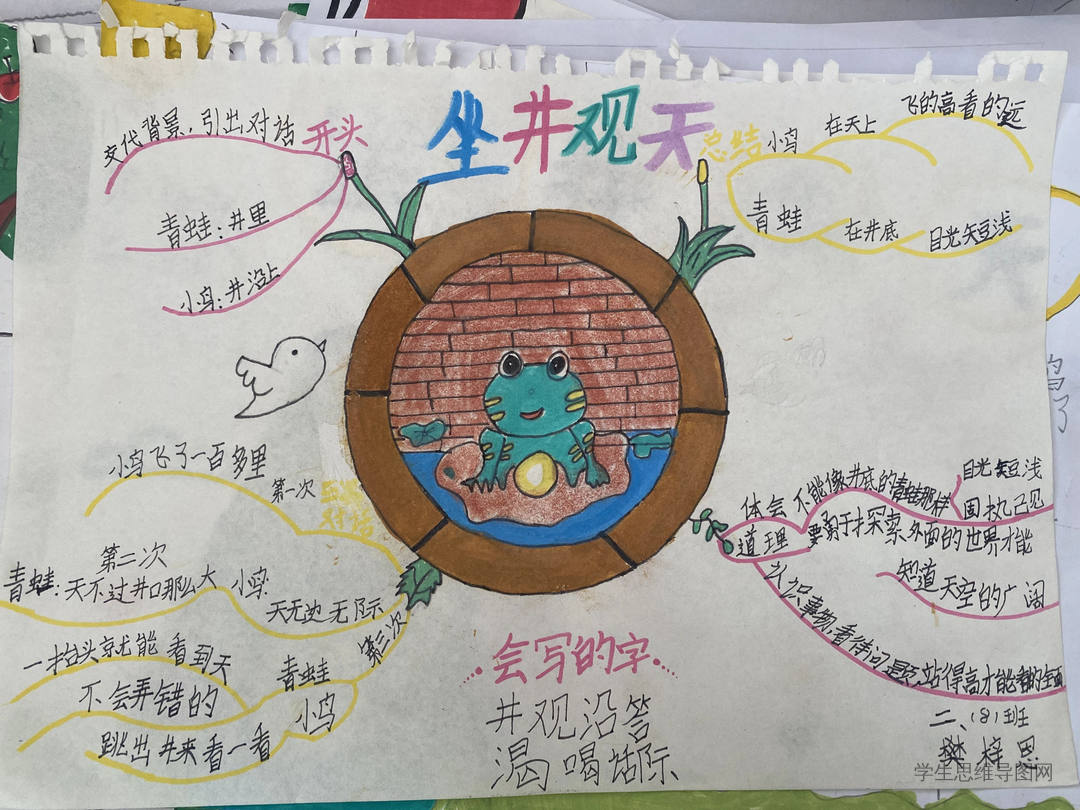 坐井观天
交代背景，引出对话 开头
青蛙：井里
小鸟：井沿上
总结 小鸟 在天上 飞的高看的远
青蛙 在井底 目光短浅
小鸟飞了一百多里
第一次
对话
第二次
青蛙：天不过井口那么大 小鸟：
天无边无际
第三次
一抬头就能看到天
青蛙
不会弄错的
小鸟
跳出井来看一看
体会
道理
不能像井底的青蛙那样
目光短浅
固执己见
要勇于探索外面的世界才能
知道天空的广阔
认识事物，看待问题
站得高才能看的全面
会写的字
井观沿答
渴喝话际
二、（8）班
樊梓恩
学生思维导图网